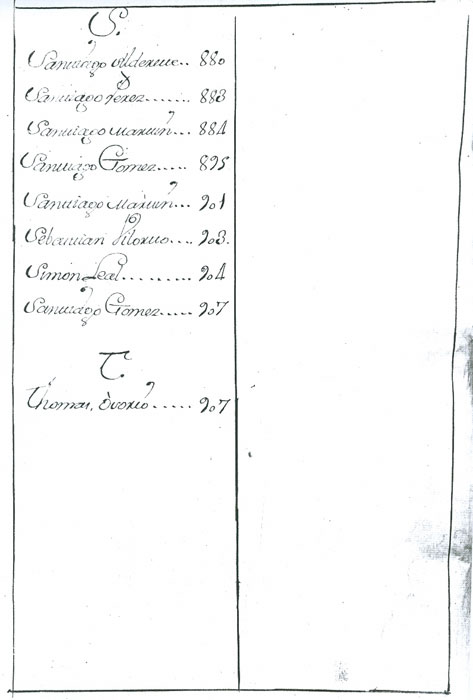 S.
Santiago Alderete.. 880
Santiago Perez....... 883
Santiago Martin... 884
Santiago Gomez..... 895
Santiago Martin... 901
Sebastian Vitorio.... 903.
Simon Leal.......... 904
Santiago Gomez..... 907
T.
Thomas, Osorio..... 907